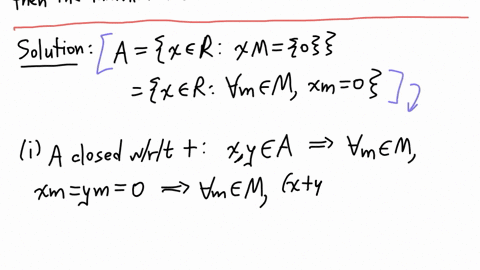 Solution: [A = {x∈R: xM = {0}}
= {x∈R: ∀m∈M, xm=0}]
(i) A closed w/r/t +: x,y∈A ⟹ ∀m∈M,
xm=ym=0 ⟹ ∀m∈M, (x+y